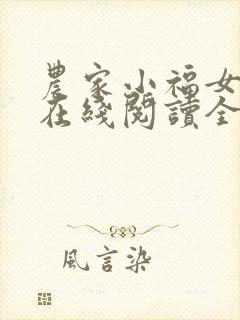 農家小福女
在綫閱讀全
風言染